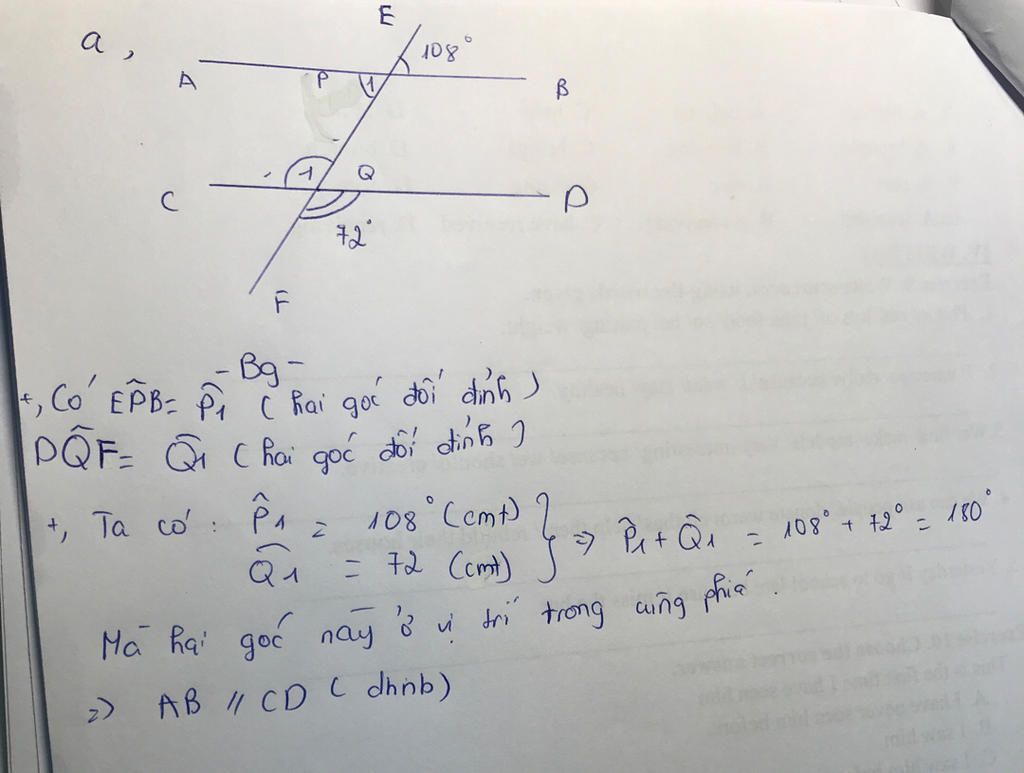 a,
E
108°
A P 1 B
C 1 Q D
72°
F
- Bg -
+, Có EP̂B = P̂1 ( hai góc đối đỉnh )
DQ̂F = Q̂1 ( hai góc đối đỉnh )
+, Ta có : P̂1 = 108° (cmt)
Q̂1 = 72 (cmt) } => P̂1 + Q̂1 = 108° + 72° = 180°
Mà hai góc này ở vị trí trong cùng phía .
=> AB // CD ( dhnb)